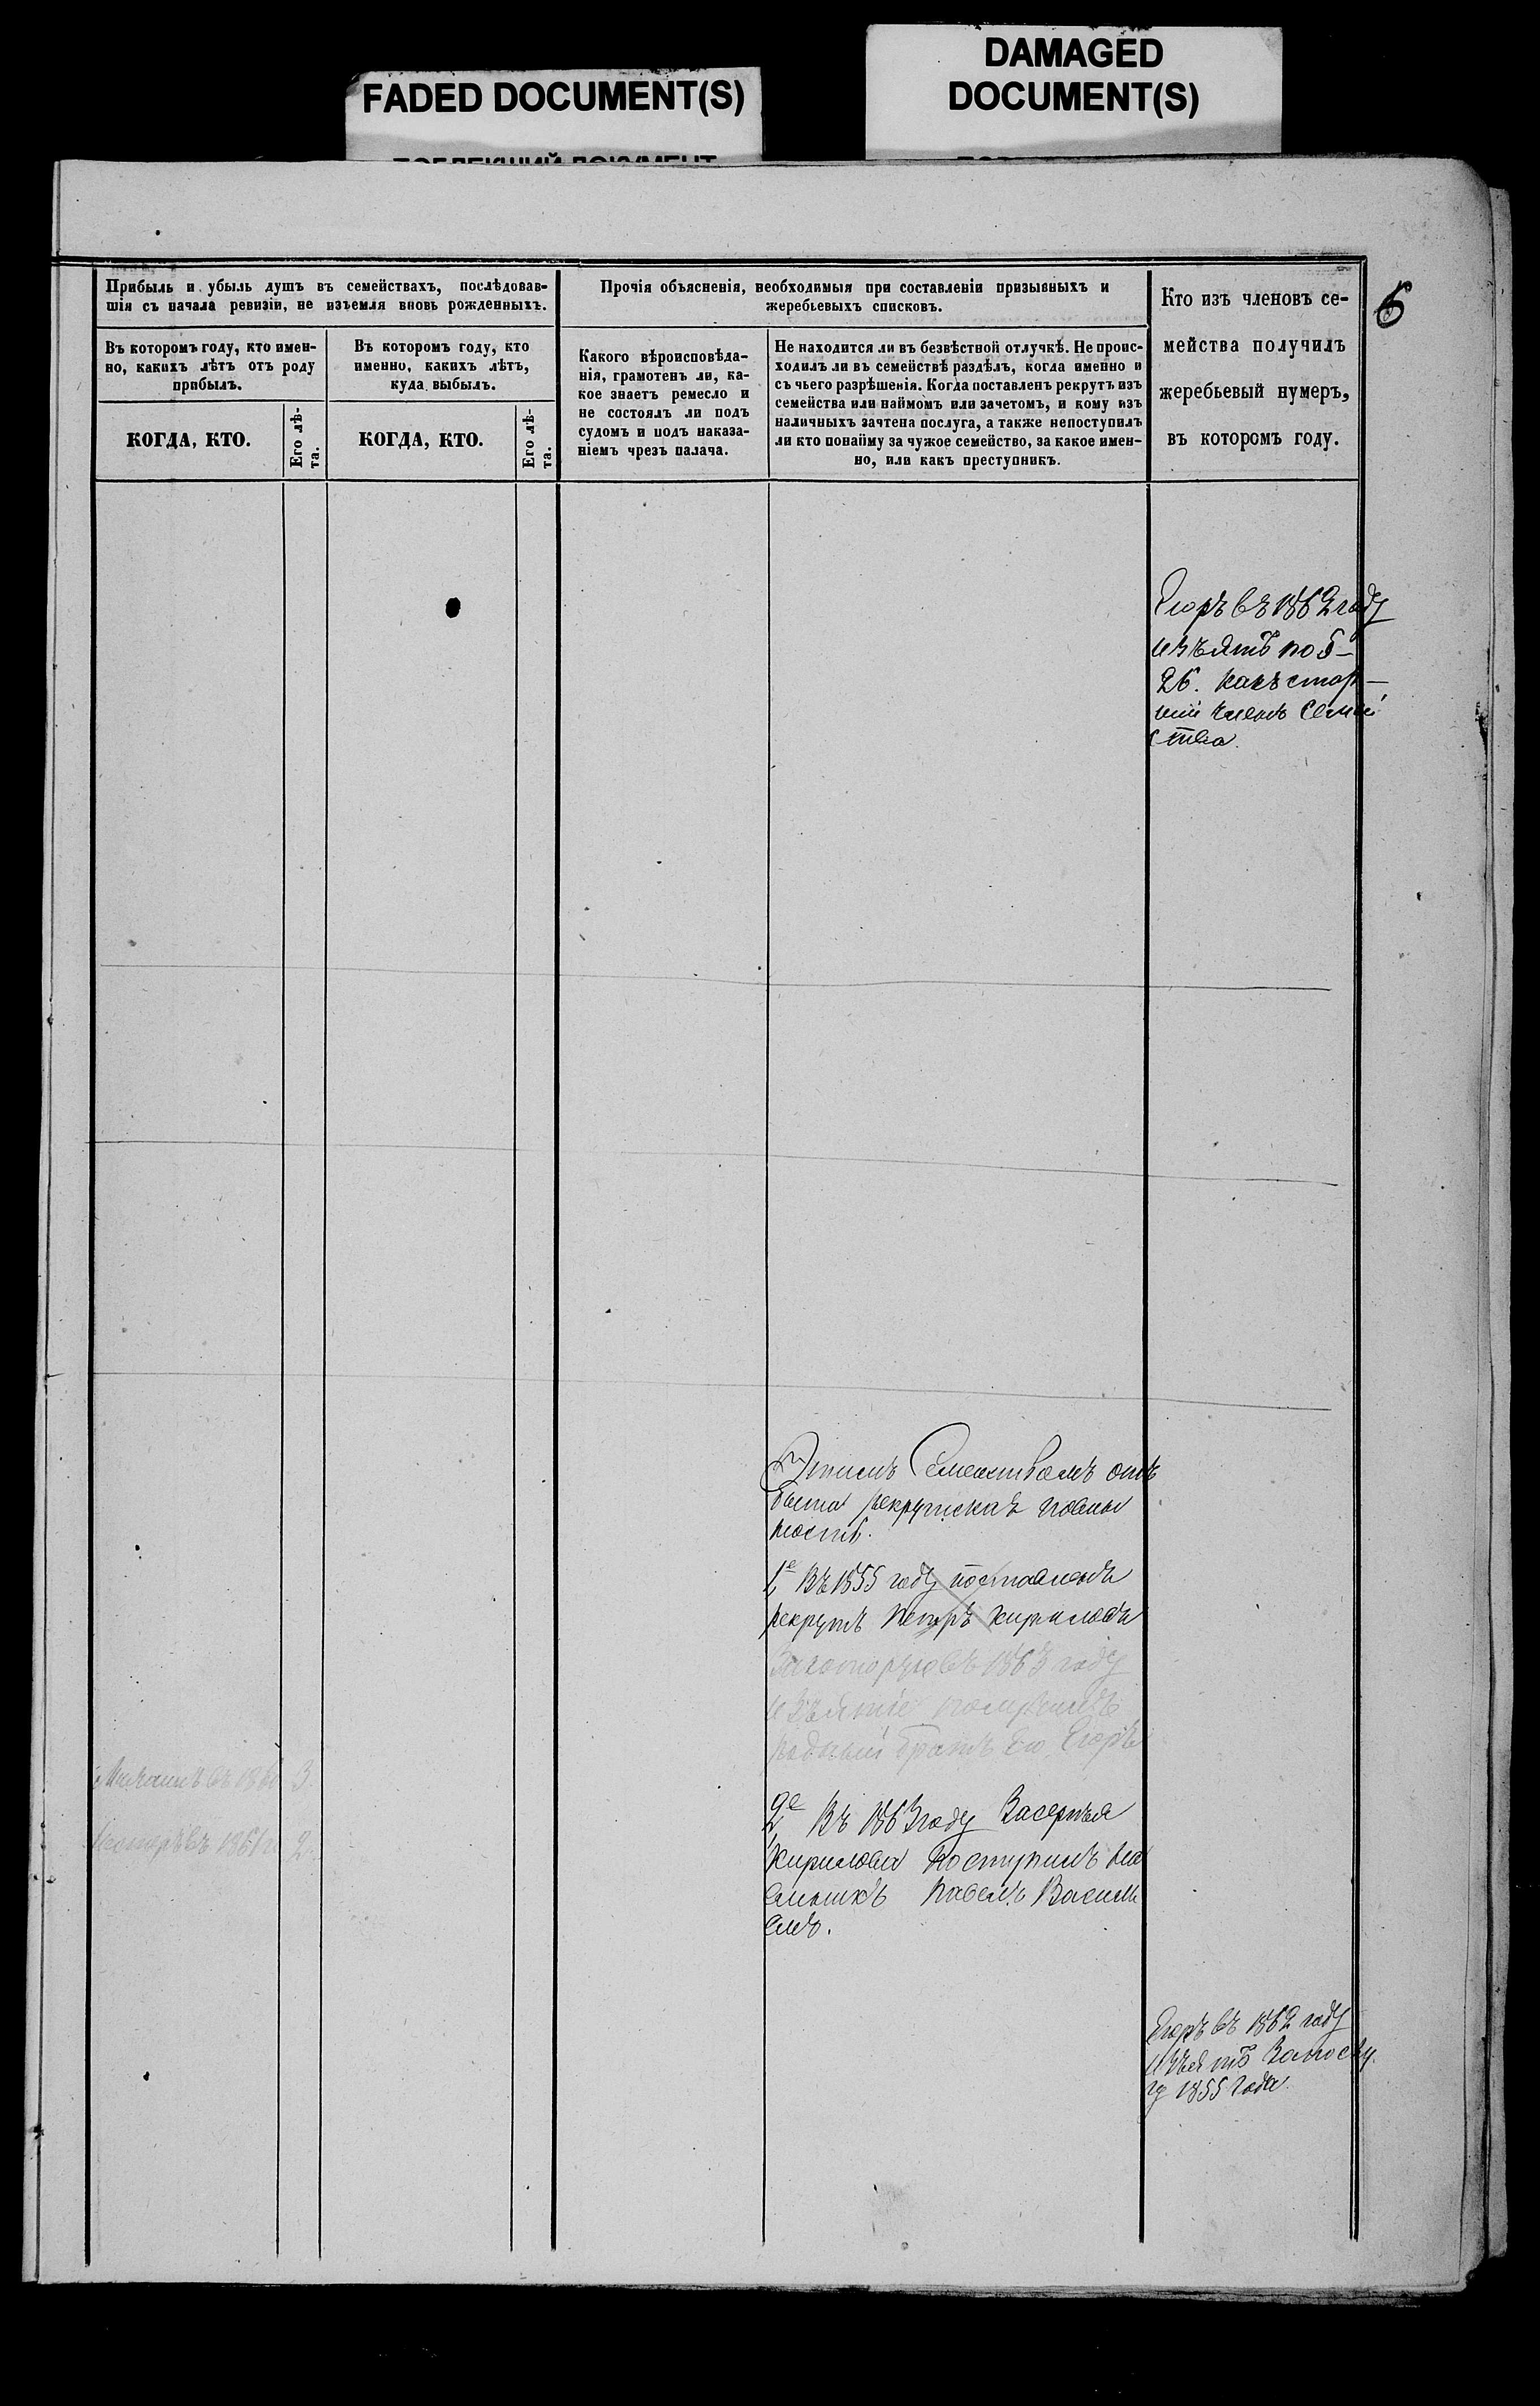 FADED DOCUMENT(S)
DAMAGED
DOCUMENT(S)
6
Прибыль и убыль душъ въ семействахъ, послѣдовав-
шія съ начала ревизіи, не изъемля вновь рожденныхъ.
Въ которомъ году, кто имен-
но, какихъ лѣтъ отъ роду
прибылъ.
КОГДА, КТО.
Его лѣ-
та.
Въ которомъ году, кто
именно, какихъ лѣтъ,
куда выбылъ.
КОГДА, КТО.
Его лѣ-
та.
Прочія объясненія, необходимыя при составленіи призывныхъ и
жеребьевыхъ списковъ.
Какого вѣроисповѣда-
нія, грамотенъ ли, ка-
кое знаетъ ремесло и
не состоялъ ли подъ
судомъ и подъ наказа-
ніемъ чрезъ палача.
Не находится ли въ безвѣстной отлучкѣ. Не проис-
ходилъ ли въ семействѣ раздѣлъ, когда именно и
съ чьего разрѣшенія. Когда поставленъ рекрутъ изъ
семейства или наймомъ или зачетомъ, и кому изъ
наличныхъ зачтена послуга, а также непоступилъ
ли кто понайму за чужое семейство, за какое имен-
но, или какъ преступникъ.
Кто изъ членовъ се-
мейства получилъ
жеребьевый нумеръ,
въ которомъ году.
Егоръ въ 1862 году
изъятъ по §
26. какъ стар-
шій членъ Семей
ства.
Этимъ Семействомъ отъ
быта рекрутская повин
ность.
1е въ 1855 году поставленъ
рекрутъ Петръ Кириловъ
За которую въ 1863 году
изъятіе
родный братъ Его Егоръ
въ 1860 3
въ 1861 2
2е Въ 1863 году За
Кирилова Поступилъ
Павелъ Василь
евъ.
Егоръ въ 1862 году
изъятъ Запослу
гу 1855 Года.